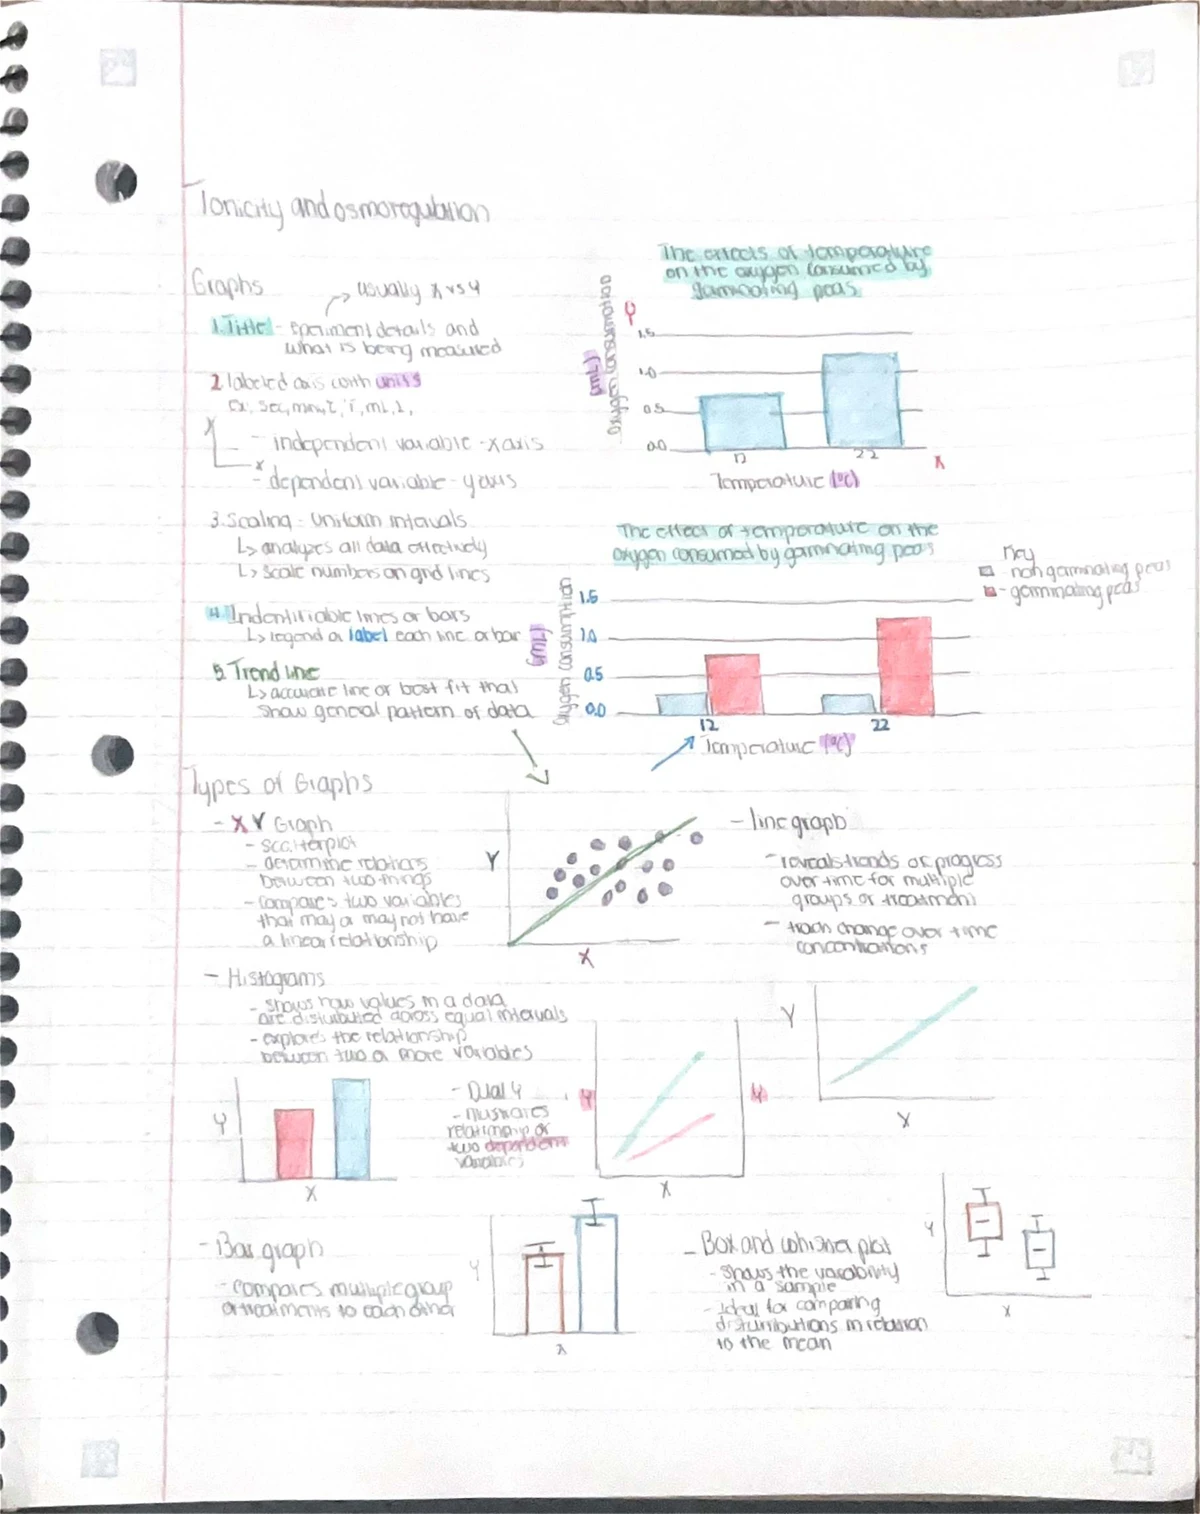 Tonicity and osmoregulation
Graphs
usually x vs y
1. Title - Eperiment details and
what is being measured
2 labeled axis with units
Ex: sec, min, mL,
y
x
- independent variable - x axis
- dependent variable - y axis
3. Scaling - Uniform intervals
↳ analyzes all data effectively
↳ scale numbers on grid lines
4. Indentifiable lines or bars
↳ legend or label each line or bar
5. Trend line
↳ accurate line or best fit that
show general pattern of data
The effects of temperature
on the oxygen consumed by
gaminating peas
Y
Oxygen consumation
(mL)
1.5
1.0
0.5
0.0
12
22
X
Temperature (°C)
The effect of temperature on the
oxygen consumed by gaminating peas
Key
- non gaminating peas
- germinating peas
Oxygen consumption
(mL)
1.5
1.0
0.5
0.0
12
22
Temperature (°C)
Types of Graphs
- X Y Graph
- scatterplot
- determine relations
between two things
- compares two variables
that may or may not have
a linear relationship
Y
X
- line graph
- reveals trends or progress
over time for multiple
groups or treatment
- track change over time
concentrations
Y
X
- Histograms
- shows how values in a data
are distributed across equal intervals
- explores the relationship
between two or more variables
Y
X
- Dual Y
- illustrates
relationship of
two dependent
variables
Y
Y
X
- Bar graph
- compares multiple group
or treatments to each other
Y
X
- Box and whisker plot
- shows the variability
in a sample
- Ideal for comparing
distributions in relation
to the mean
Y
X